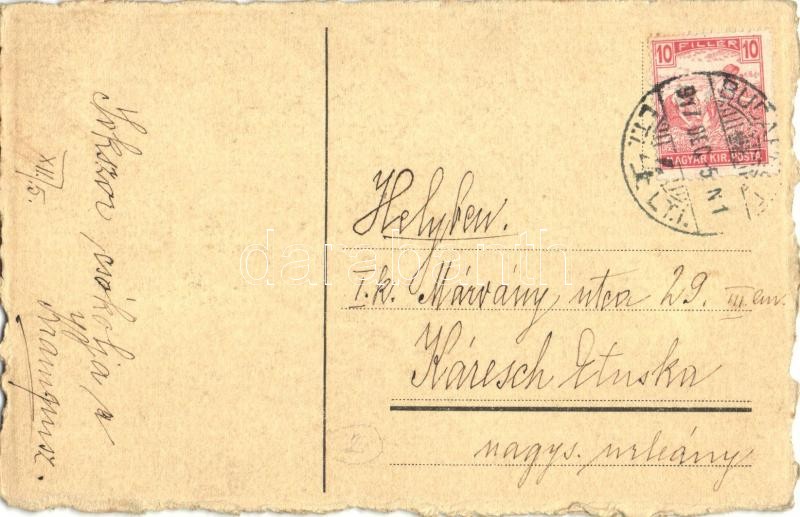 XII/5.
Sokszor csókolja, a
10 FILLÉR 10
MAGYAR KIR. POSTA
917 DEC 5 N1
Helyben.
I. k. Márvány utca 29. III em.
Káresch Etuska
nagys. urleány
darabanth